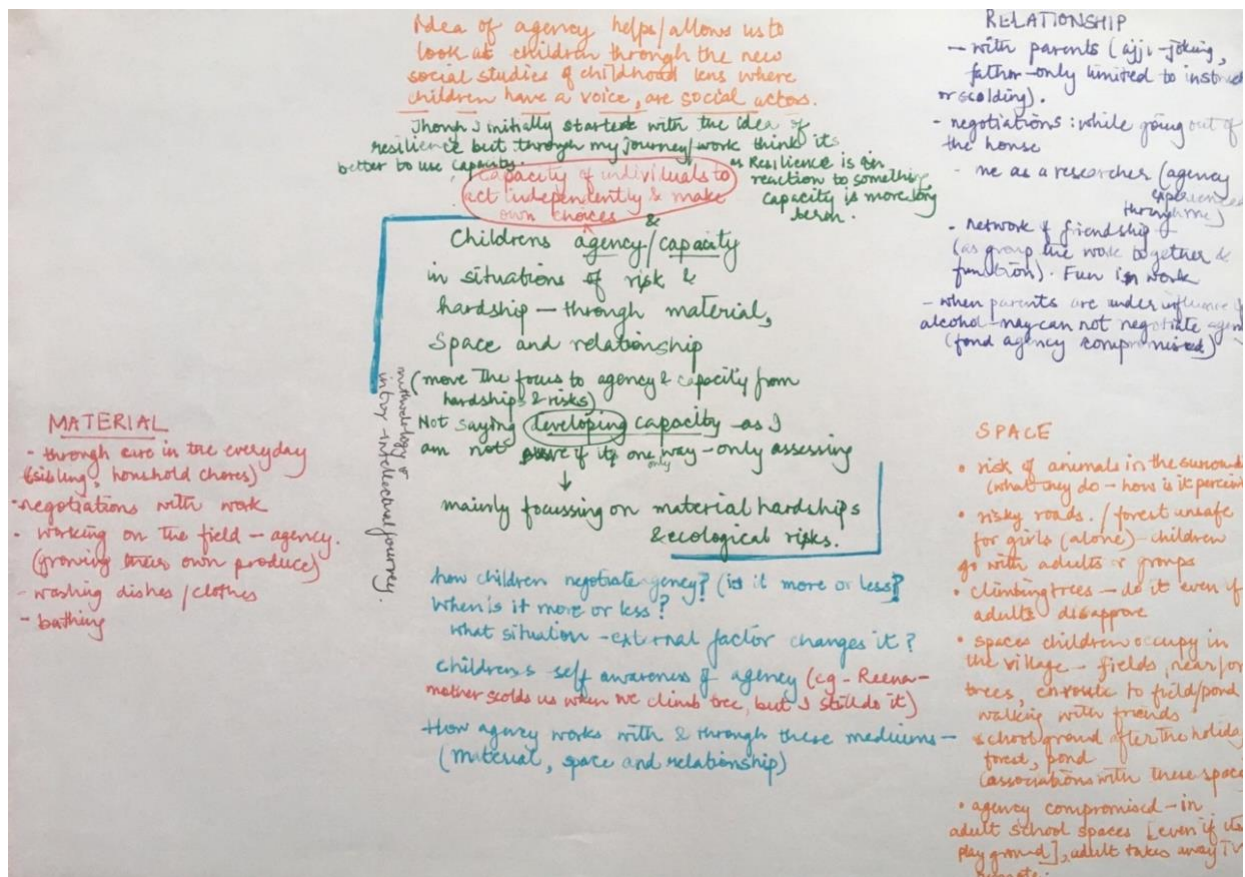 Idea of agency helps/allows us to
look at children through the new
social studies of childhood lens where
children have a voice, are social actors.
Though I initially started with the idea of
resilience but through my journey/work think its
better to use capacity.
as Resilience is in
reaction to something,
capacity is more long
term.
Capacity of individuals to
act independently & make
own choices
&
Childrens agency/capacity
in situations of risk &
hardship — through material,
Space and relationship
(move the focus to agency & capacity from
hardships & risks)
Not saying developing capacity - as I
am not if its one way - only assessing
only
mainly focussing on material hardships
& ecological risks.
methodology or
intro - intellectual journey.
how children negotiate agency? (is it more or less?
When is it more or less?
what situation - external factor changes it?
childrens self awareness of agency (eg - Reena -
mother scolds us when we climb tree, but I still do it)
How agency works with & through these mediums -
(material, space and relationship)
MATERIAL
- through care in the everyday
(sibling, household chores)
- negotiations with work
- working on the field - agency.
(growing their own produce)
- washing dishes / clothes
- bathing
RELATIONSHIP
- with parents (ajji - joking,
father - only limited to
or scolding).
- negotiations: while going out of
the house
- me as a researcher (agency
experienced
through me)
- Network of friendship
(as group the work together &
function). Fun in work
- when parents are under influence
alcohol - may can not negotiate
(fond agency compromised)
SPACE
• risk of animals in the
(what they do - how is it
• risky roads. / forest unsafe
for girls (alone) - children
go with adults or groups
• climbing trees - do it even if
adults disapprove
• spaces children occupy in
the village - fields, near/on
trees, enroute to field/pond
walking with friends
school ground after the
forest, pond
(associations with these
• agency compromised - in
adult school spaces [even if its
play ground], adult takes away TV